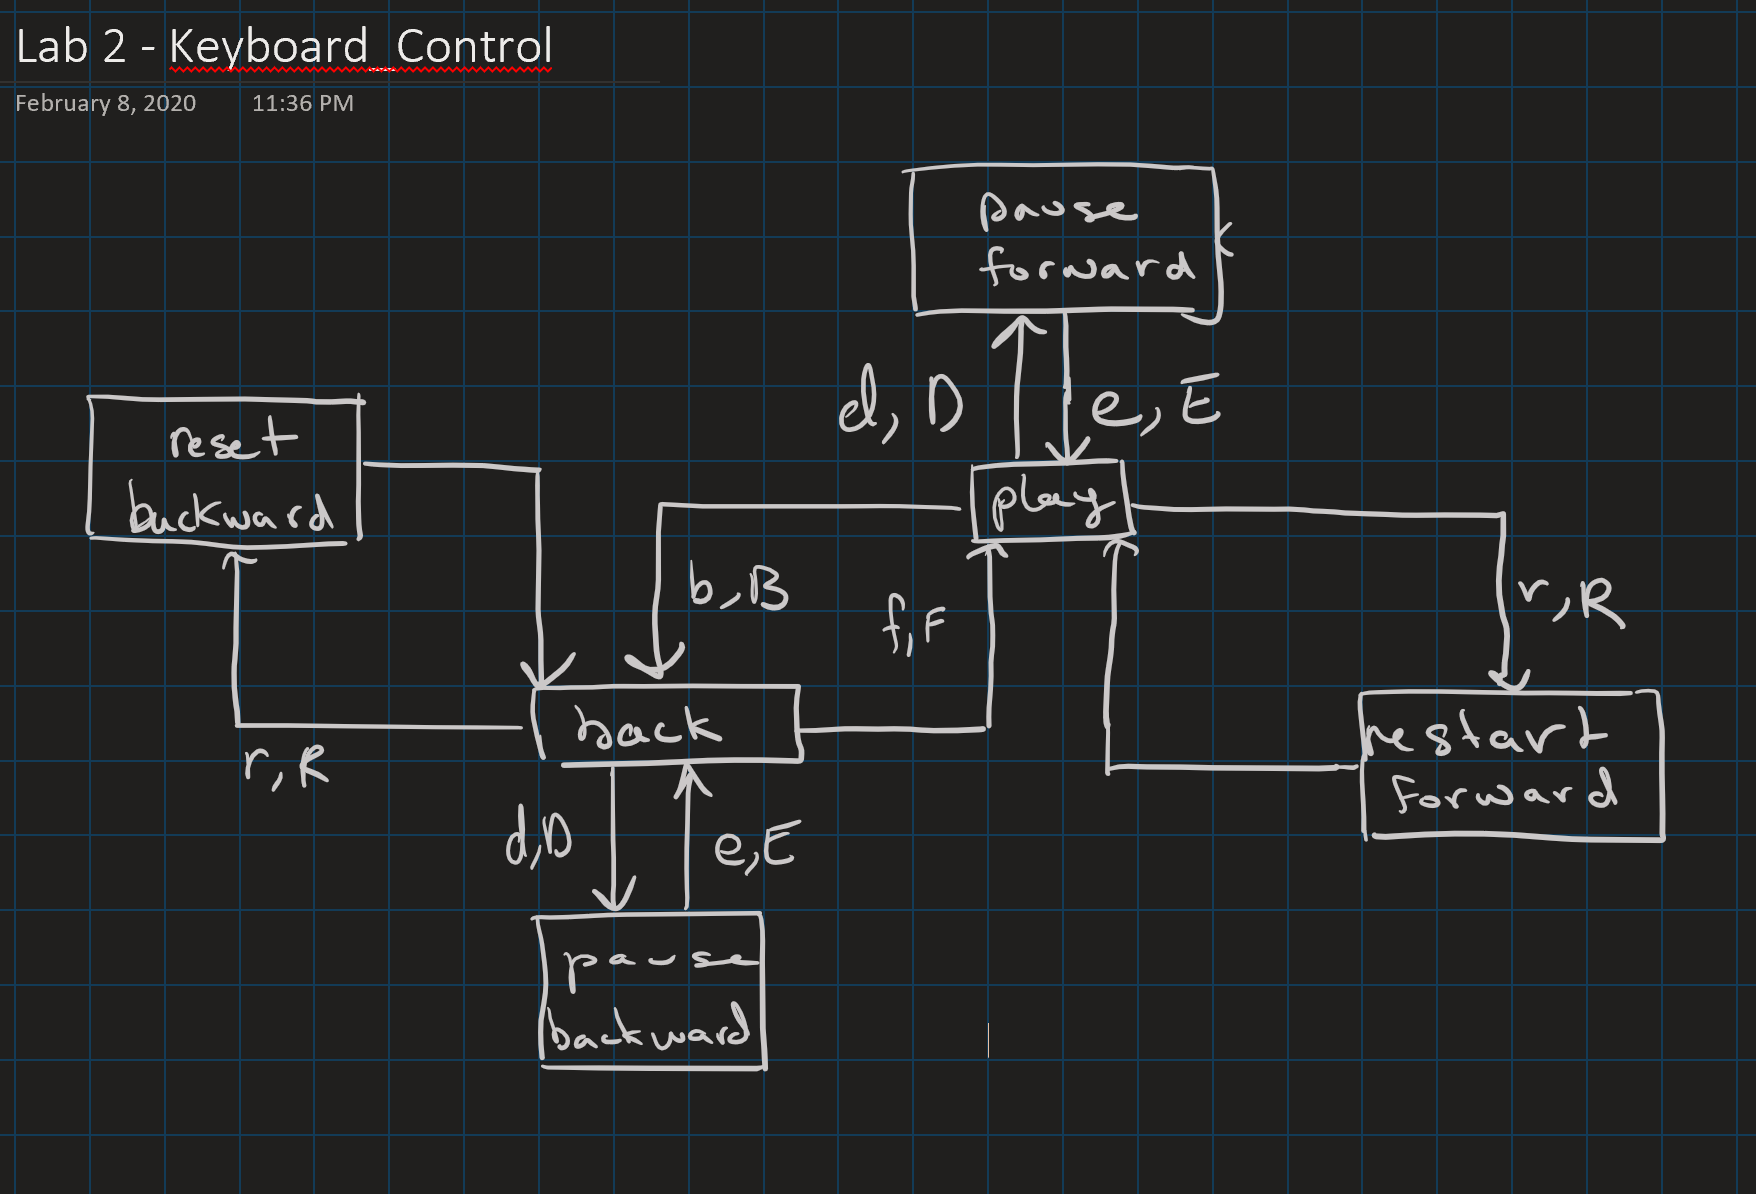 Lab 2 - Keyboard_Control
February 8, 2020 11:36 PM
pause
forward
d, D
e, E
reset
backward
play
b, B
f, F
r, R
back
restart
Forward
r, R
d, D
e, E
pause
backward